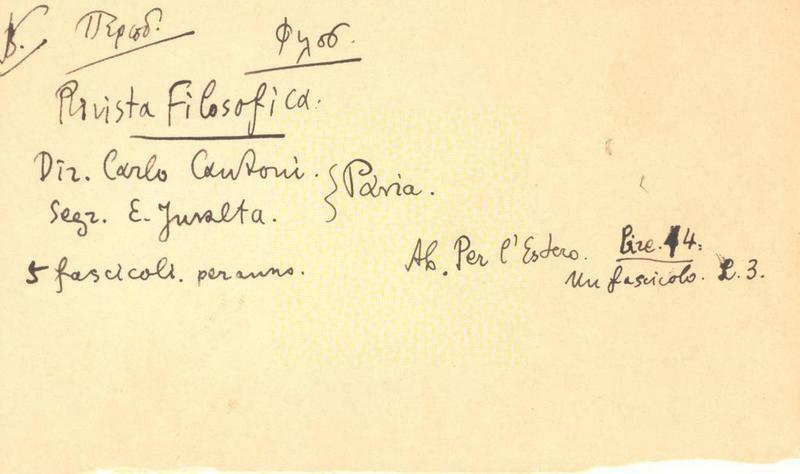 Περιοδ. Φιλοσ.
Rivista Filosofica.
Dir. Carlo Cantoni.
Segr. E. Juvalta.
Pavia.
5 fascicoli. per anno.
Ab. Per l'Estero. Lire. 14:
Un fascicolo. L. 3.